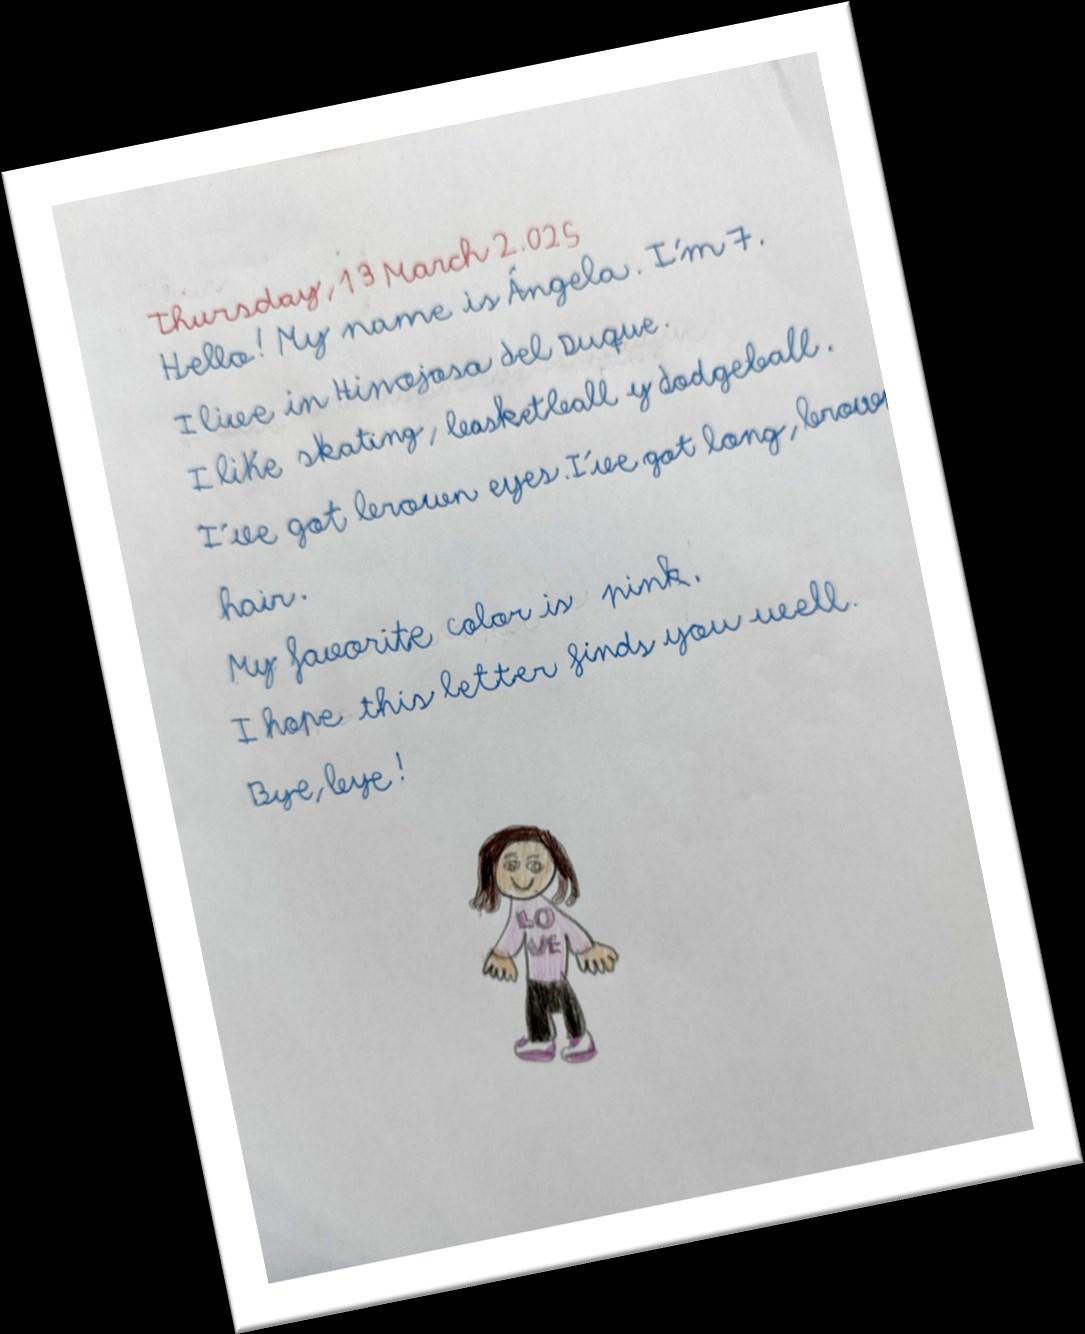 Thursday, 13 March 2.025
Hello! My name is Ángela. I'm 7.
I live in Hinojosa del Duque.
I like skating, basketball y dodgeball.
I've got brown eyes. I've got long, brown
hair.
My favorite color is pink.
I hope this letter finds you well.
Bye, bye!
LO
VE